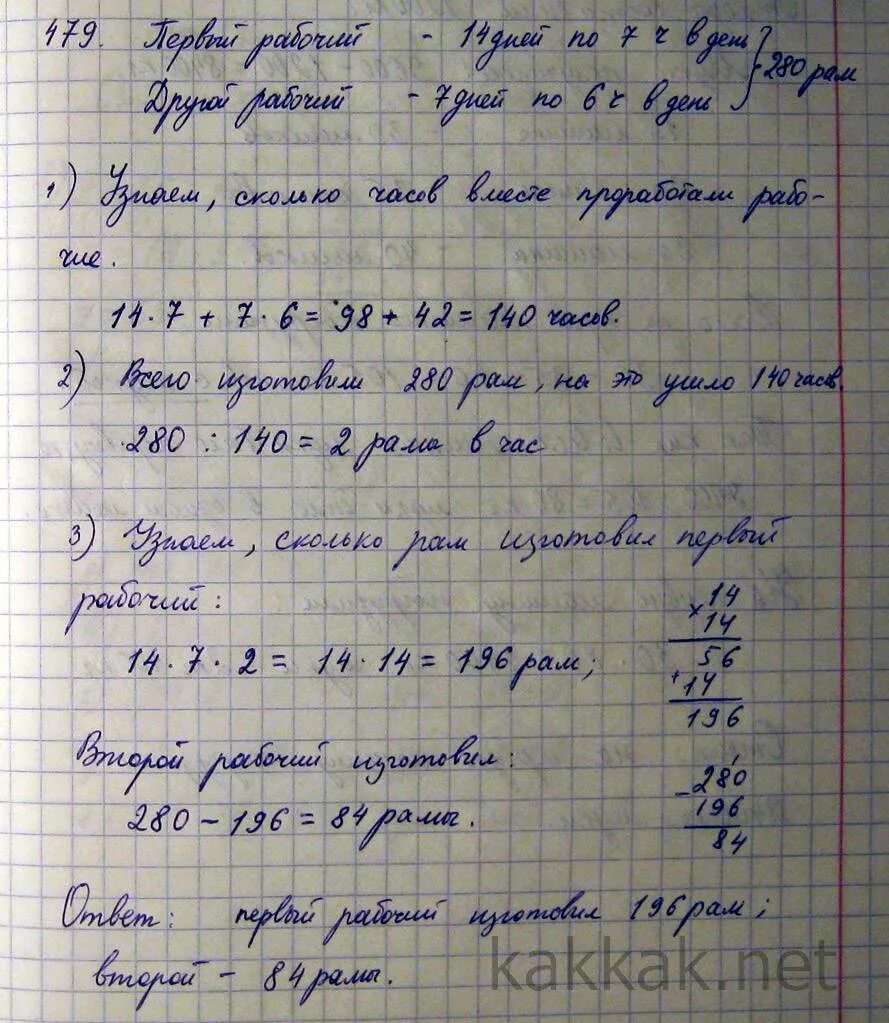 479. Первый рабочий - 14 дней по 7 ч в день } 280 рам
Другой рабочий - 7 дней по 6 ч в день
1) Узнаем, сколько часов вместе проработали рабо-
чие.
14 · 7 + 7 · 6 = 98 + 42 = 140 часов.
2) Всего изготовили 280 рам, на это ушло 140 часов.
280 : 140 = 2 рамы в час
3) Узнаем, сколько рам изготовил первый
рабочий:
14 · 7 · 2 = 14 · 14 = 196 рам;
× 14
14
56
+ 14
196
Второй рабочий изготовил:
280 - 196 = 84 рамы.
- 280
196
84
Ответ: первый рабочий изготовил 196 рам;
второй - 84 рамы.
kakkak.net